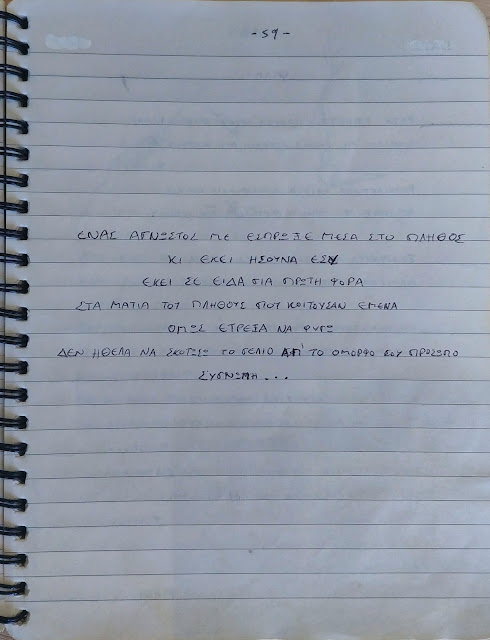 -59-
ΕΝΑΣ ΑΓΝΩΣΤΟΣ ΜΕ ΕΣΠΡΩΞΕ ΜΕΣΑ ΣΤΟ ΠΛΗΘΟΣ
ΚΙ ΕΚΕΙ ΗΣΟΥΝΑ ΕΣΥ
ΕΚΕΙ ΣΕ ΕΙΔΑ ΓΙΑ ΠΡΩΤΗ ΦΟΡΑ
ΣΤΑ ΜΑΤΙΑ ΤΟΥ ΠΛΗΘΟΥΣ ΠΟΥ ΚΟΙΤΟΥΣΑΝ ΕΜΕΝΑ
ΟΜΩΣ ΕΤΡΕΞΑ ΝΑ ΦΥΓΩ
ΔΕΝ ΗΘΕΛΑ ΝΑ ΣΚΟΤΩΣΩ ΤΟ ΓΕΛΙΟ ΑΠ' ΤΟ ΟΜΟΡΦΟ ΣΟΥ ΠΡΟΣΩΠΟ
ΣΥΓΝΩΜΗ...